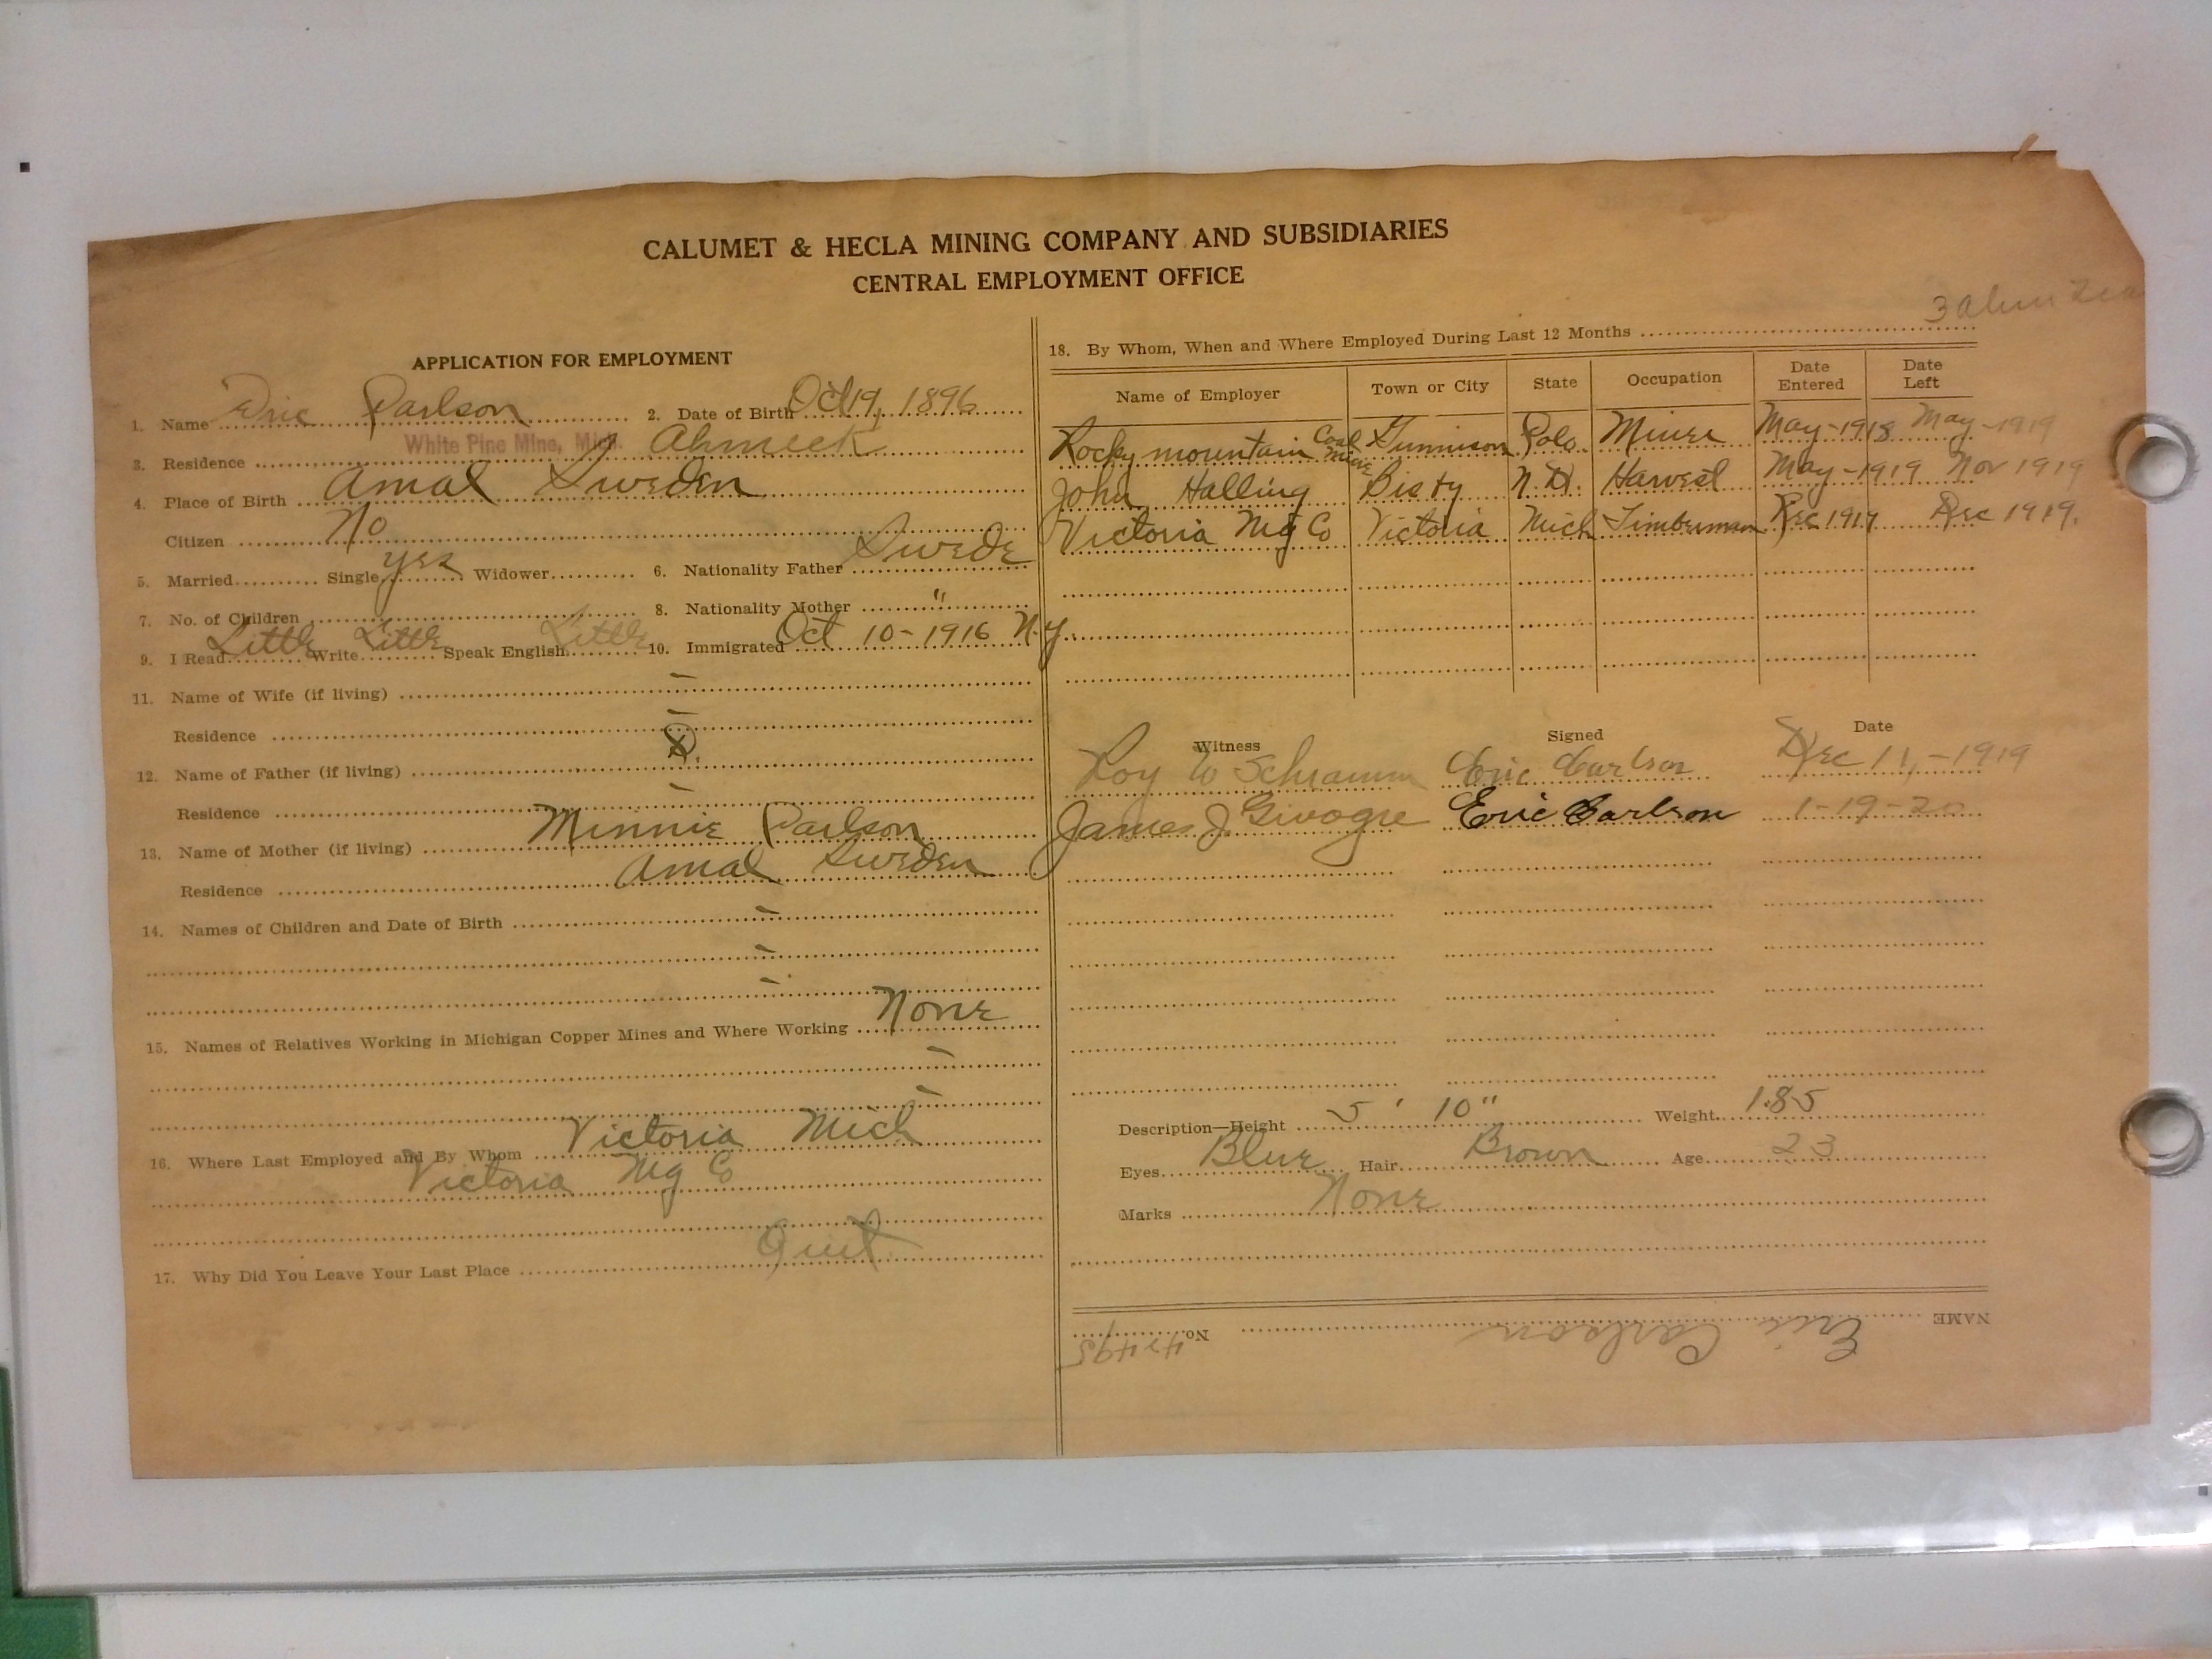 CALUMET & HECLA MINING COMPANY AND SUBSIDIARIES
CENTRAL EMPLOYMENT OFFICE
APPLICATION FOR EMPLOYMENT
1. Name Eric Carlson 2. Date of Birth Oct 19, 1896
White Pine Mine, Mich.
3. Residence Ahmeek
4. Place of Birth Amal Sweden
Citizen No
5. Married Single yes Widower 6. Nationality Father Swede
7. No. of Children 8. Nationality Mother "
9. I Read Little Write Little Speak English Little 10. Immigrated Oct 10-1916 N.Y.
11. Name of Wife (if living) –
Residence –
12. Name of Father (if living) D.
Residence –
13. Name of Mother (if living) Minnie Carlson
Residence Amal Sweden
14. Names of Children and Date of Birth –
–
–
15. Names of Relatives Working in Michigan Copper Mines and Where Working None
–
–
16. Where Last Employed and By Whom Victoria Mich
Victoria Mg Co
17. Why Did You Leave Your Last Place Quit
3
18. By Whom, When and Where Employed During Last 12 Months
Name of Employer Town or City State Occupation Date Entered Date Left
Rocky mountain Coal Mine Gunnison Colo. Miner May-1918 May-1919
John Halling Bisty N.D. Harvest May-1919 Nov 1919
Victoria Mg Co Victoria Mich Timberman Dec 1919 Dec 1919.
Witness Signed Date
Roy W Schramm Eric Carlson Dec 11,-1919
James J. Givogre Eric Carlson 1-19-20
Description—Height 5' 10" Weight 185
Eyes Blue Hair Brown Age 23
Marks None
NAME Eric Carlson No. 47495